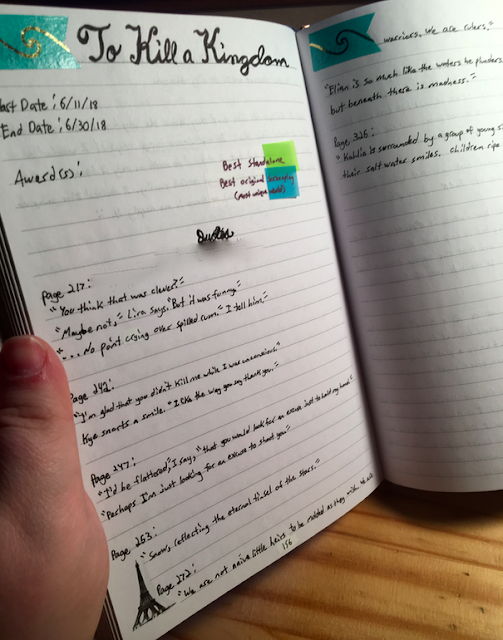 To Kill a Kingdom
tart Date : 6/11/18
End Date : 6/30/18
Award(s) :
Best standalone
Best original
(most unique world)
Page 217:
"You think that was clever?"
"Maybe not," Lira says. "But it was funny."
"... No point crying over spilled rum." I tell him."
Page 242:
"I'm glad that you didn't kill me while I was unconscious."
Kye snorts a smile. "I like the way you say thank you."
Page 247:
"I'd be flattered," I say, "that you would look for an excuse just to hold my hand."
"Perhaps I'm just looking for an excuse to shoot you."
Page 263:
"Snow, reflecting the eternal tinsel of the stars."
Page 272:
"We are not naive little heirs to be molded as they wish. We are
156
warriors. We are rulers."
"Elian is so much like the waters he plunders
but beneath there is madness."
Page 326:
"Kahlia is surrounded by a group of young s
their saltwater smiles. Children ripe